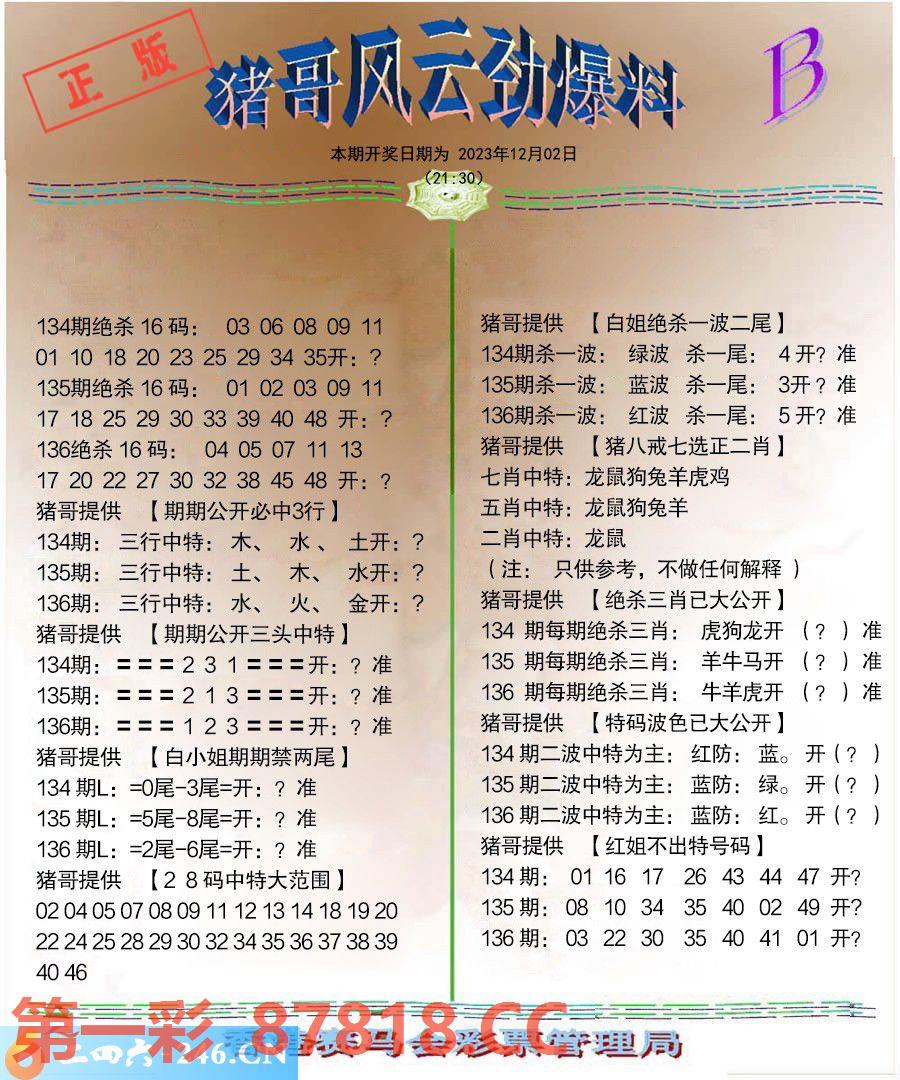 正版
猪哥风云劲爆料
B
本期开奖日期为 2023年12月02日
(21:30)
134期绝杀16码： 03 06 08 09 11
01 10 18 20 23 25 29 34 35开：?
135期绝杀16码： 01 02 03 09 11
17 18 25 29 30 33 39 40 48 开：?
136绝杀16码： 04 05 07 11 13
17 20 22 27 30 32 38 45 48 开：?
猪哥提供 【期期公开必中3行】
134期： 三行中特： 木、 水、 土开：?
135期： 三行中特： 土、 木、 水开：?
136期： 三行中特： 水、 火、 金开：?
猪哥提供 【期期公开三头中特】
134期：〓〓〓２３１〓〓〓开：? 准
135期：〓〓〓２１３〓〓〓开：? 准
136期：〓〓〓１２３〓〓〓开：? 准
猪哥提供 【白小姐期期禁两尾】
134期L：=0尾-3尾=开：? 准
135期L：=5尾-8尾=开：? 准
136期L：=2尾-6尾=开：? 准
猪哥提供 【２８码中特大范围】
02 04 05 07 08 09 11 12 13 14 18 19 20
22 24 25 28 29 30 32 34 35 36 37 38 39
40 46
猪哥提供 【白姐绝杀一波二尾】
134期杀一波： 绿波 杀一尾： 4开? 准
135期杀一波： 蓝波 杀一尾： 3开? 准
136期杀一波： 红波 杀一尾： 5开? 准
猪哥提供 【猪八戒七选正二肖】
七肖中特：龙鼠狗兔羊虎鸡
五肖中特：龙鼠狗兔羊
二肖中特：龙鼠
（注： 只供参考，不做任何解释 ）
猪哥提供 【绝杀三肖已大公开】
134 期每期绝杀三肖： 虎狗龙开 （? ）准
135 期每期绝杀三肖： 羊牛马开 （? ）准
136 期每期绝杀三肖： 牛羊虎开 （? ）准
猪哥提供 【特码波色已大公开】
134 期二波中特为主： 红防： 蓝。 开(? )
135 期二波中特为主： 蓝防： 绿。 开(? )
136 期二波中特为主： 蓝防： 红。 开(? )
猪哥提供 【红姐不出特号码】
134 期： 01 16 17 26 43 44 47 开?
135 期： 08 10 34 35 40 02 49 开?
136 期： 03 22 30 35 40 41 01 开?
第一彩 87818.CC
二四六 246.CN
香港赛马会彩票管理局